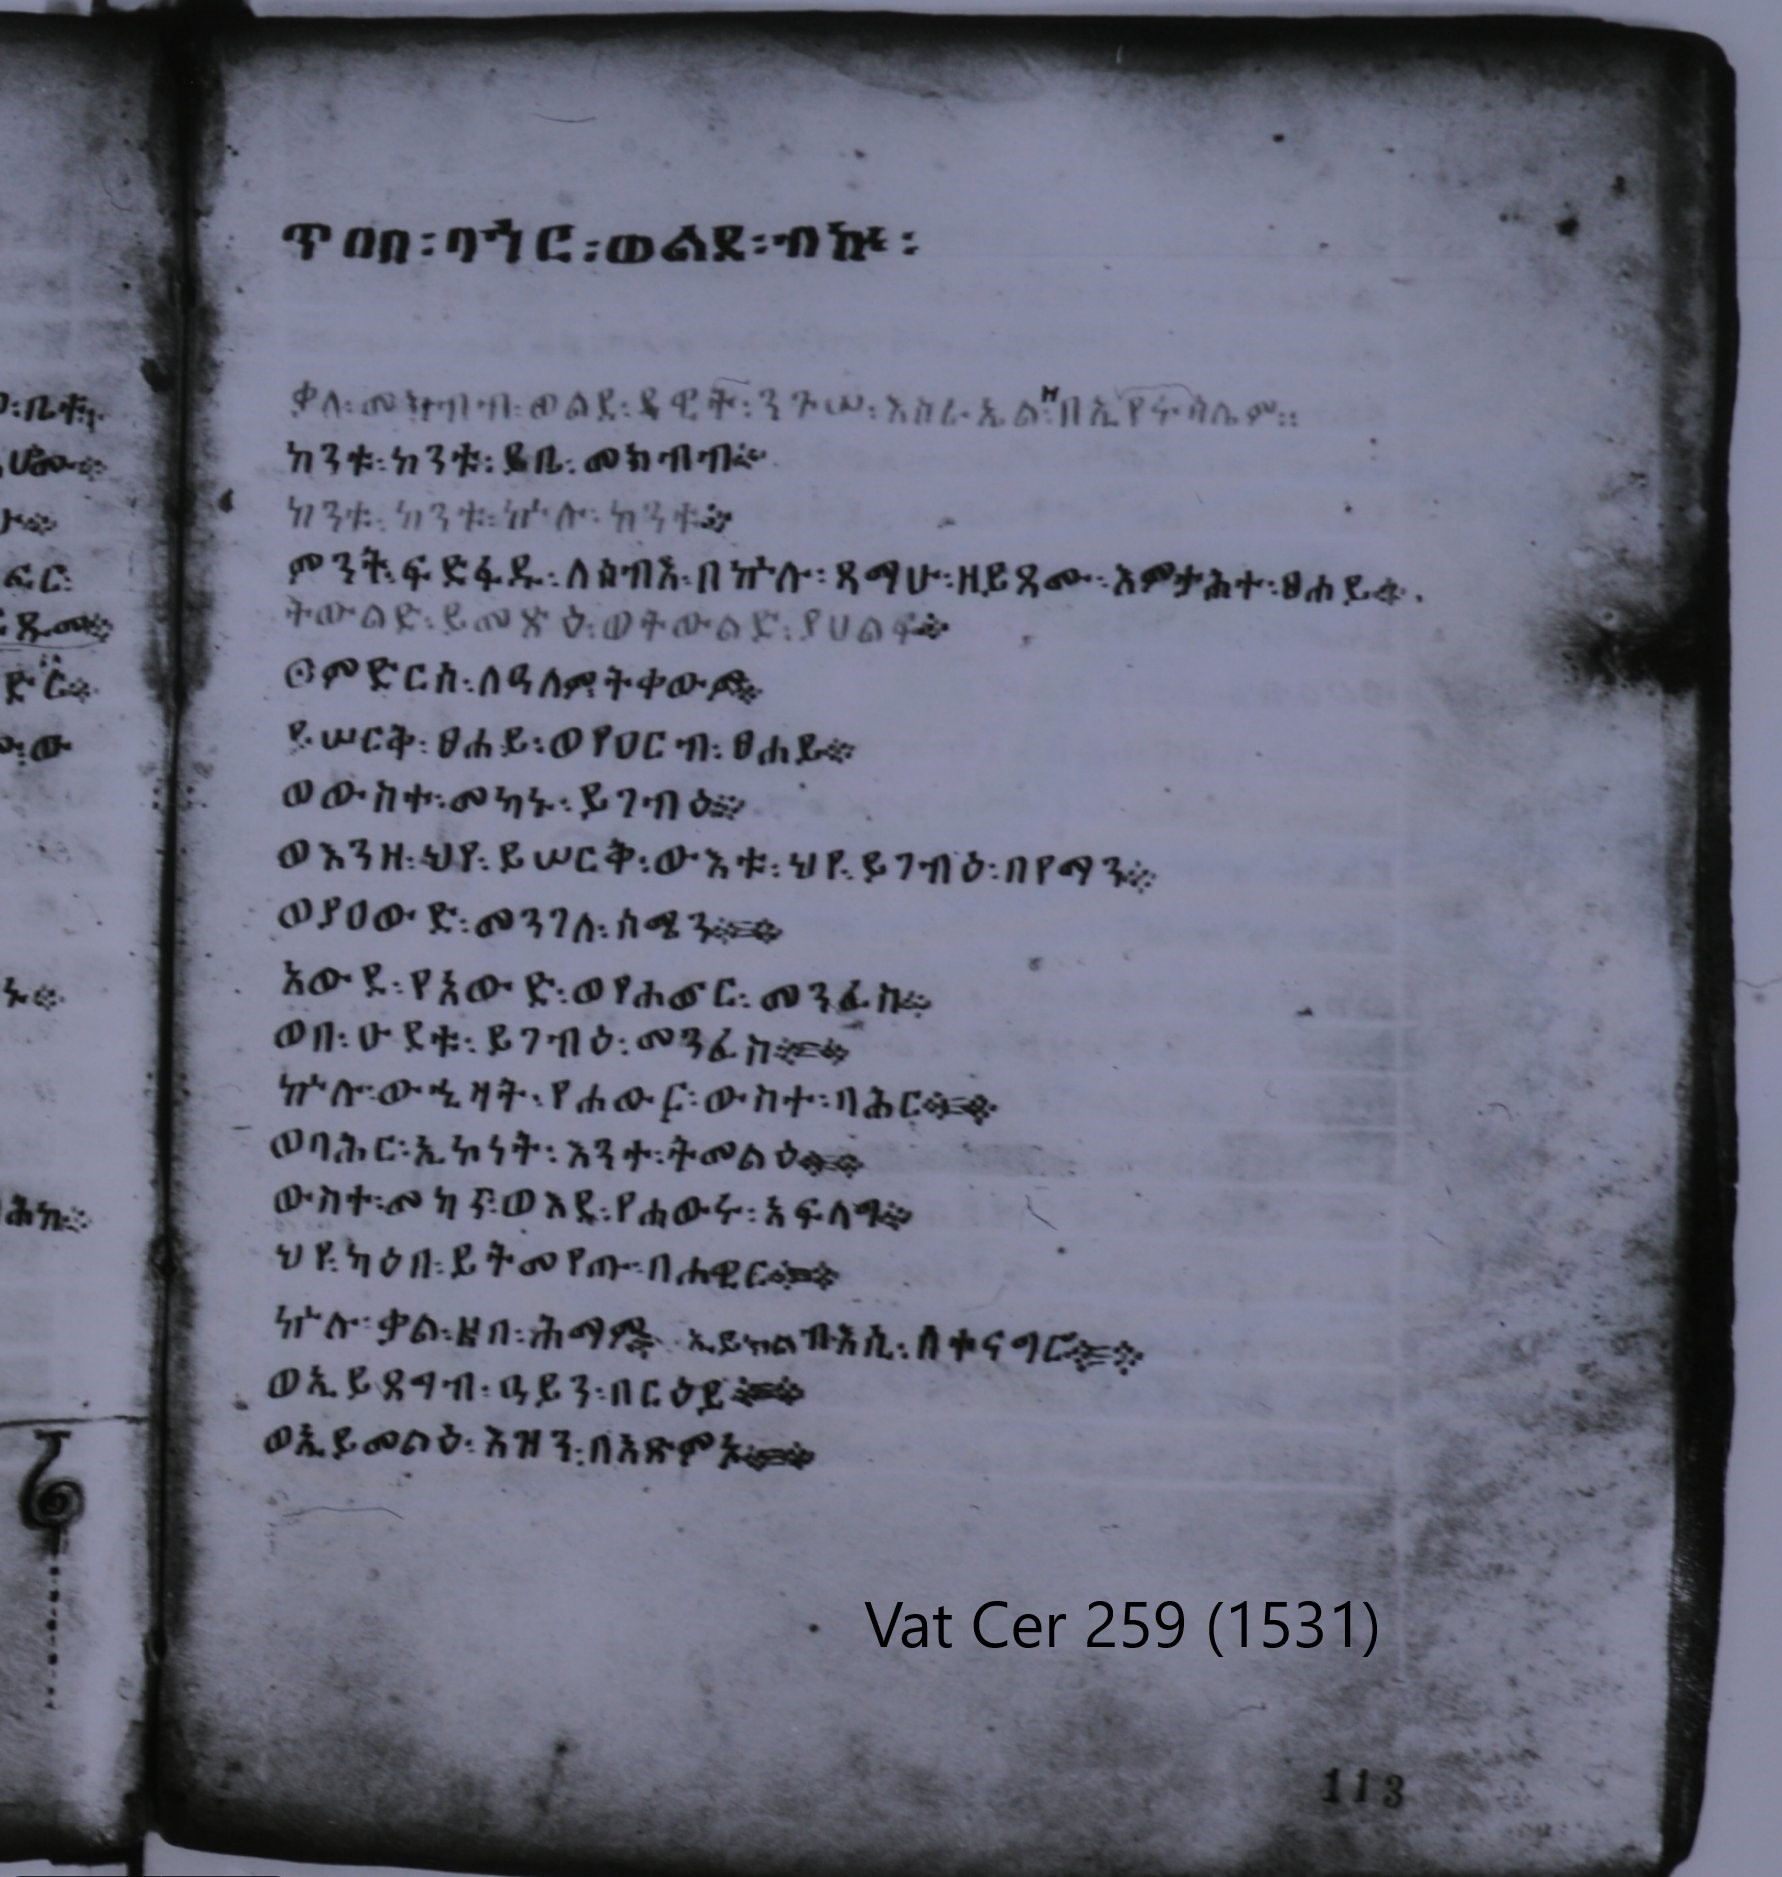 ጥበበ፡ ባኅር፡ ወልደ፡ ብኩር፡
ቃለ፡ መክብብ፡ ወልደ፡ ዳዊት፡ ንጉሠ፡ እስራኤል፡ ዘበኢየሩሳሌም።
ከንቱ፡ ከንቱ፡ ይቤ፡ መክብብ፨
ከንቱ፡ ከንቱ፡ ኵሉ፡ ከንቱ፨
ምንት፡ ፍድፋዱ፡ ለሰብእ፡ በኵሉ፡ ጻማሁ፡ ዘይጻሙ፡ እምታሕተ፡ ፀሐይ፨
ትውልድ፡ ይመጽዕ፡ ወትውልድ፡ ያሀልፍ፨
ወምድርሰ፡ ለዓለም፡ ትቀውም፨
ይሠርቅ፡ ፀሐይ፡ ወየዐርብ፡ ፀሐይ፨
ወውስተ፡ መካኑ፡ ይገብዕ፨
ወእንዘ፡ ህየ፡ ይሠርቅ፡ ውእቱ፡ ህየ፡ ይገብዕ፡ በየማን፨
ወያዐውድ፡ መንገለ፡ ሰሜን፨
አውደ፡ የአውድ፡ ወየሐውር፡ መንፈስ፨
ወበ፡ ሁደቱ፡ ይገብዕ፡ መንፈስ፨
ኵሉ፡ ውኂዛት፡ የሐውር፡ ውስተ፡ ባሕር፨
ወባሕር፡ ኢኮነት፡ እንተ፡ ትመልዕ፨
ውስተ፡ መካን፡ ወእደ፡ የሐውሩ፡ አፍላግ፨
ህየ፡ ካዕበ፡ ይትመየጡ፡ በሐዊር፨
ኵሉ፡ ቃል፡ ዘበ፡ ሕማም፨ ኢይክል ብእሲ፡ ለተናግሮ፨
ወኢይጸግብ፡ ዓይን፡ በርዕይ፨
ወኢይመልዕ፡ እዝን፡ በአጽምኦ፨
Vat Cer 259 (1531)
113